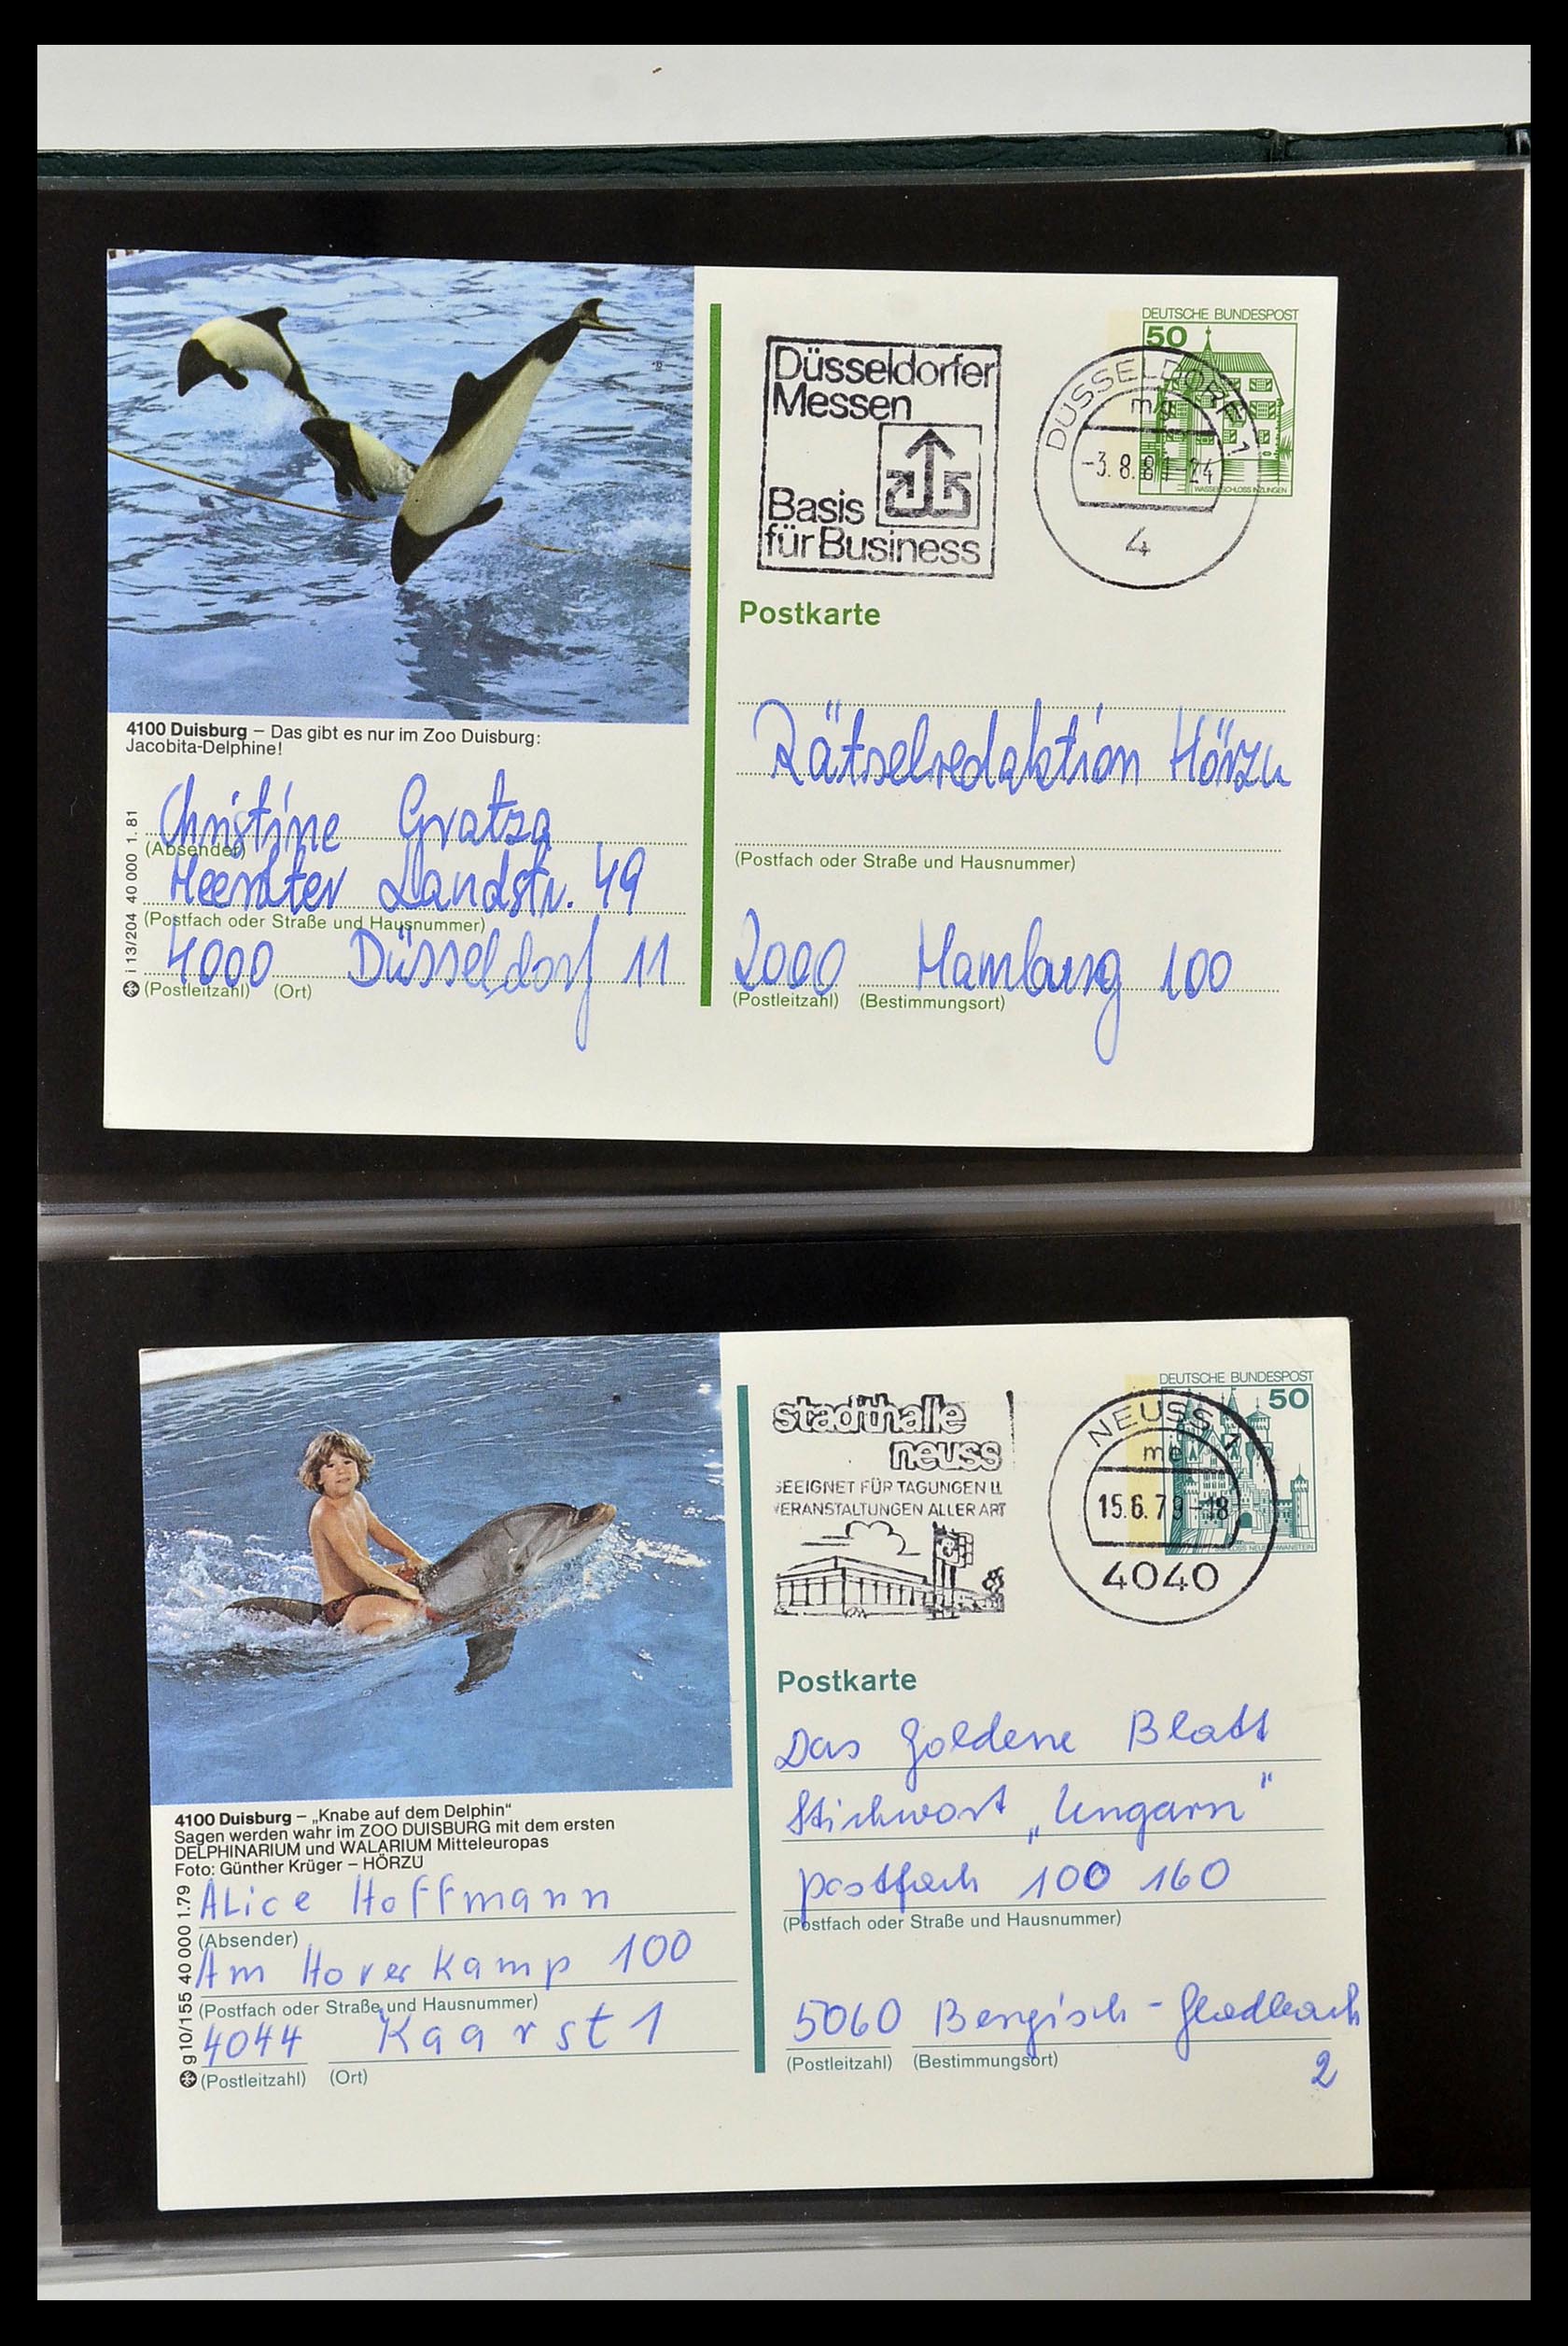 DEUTSCHE BUNDESPOST
50
WASSERSCHLOSS INZLINGEN
Düsseldorfer
Messen
Basis
für Business
DÜSSELDORF 1
mg
-3.8.81-24
4
Postkarte
4100 Duisburg – Das gibt es nur im Zoo Duisburg:
Jacobita-Delphine!
Rätselredaktion Hörzu
Christine Gratza
(Absender)
Heerdter Landstr. 49
(Postfach oder Straße und Hausnummer)
4000 Düsseldorf 11
(Postleitzahl) (Ort)
i 13/204 40 000 1. 81
(Postfach oder Straße und Hausnummer)
2000 Hamburg 100
(Postleitzahl) (Bestimmungsort)
DEUTSCHE BUNDESPOST
50
SCHLOSS NEUSCHWANSTEIN
stadthalle
neuss
GEEIGNET FÜR TAGUNGEN U.
VERANSTALTUNGEN ALLER ART
NEUSS 1
me
15.6.79-18
4040
Postkarte
4100 Duisburg – „Knabe auf dem Delphin“
Sagen werden wahr im ZOO DUISBURG mit dem ersten
DELPHINARIUM und WALARIUM Mitteleuropas
Foto: Günther Krüger – HÖRZU
Alice Hoffmann
(Absender)
Am Hoverkamp 100
(Postfach oder Straße und Hausnummer)
4044 Kaarst 1
(Postleitzahl) (Ort)
g10/155 40 000 1.79
Das Goldene Blatt
Stichwort „Ungarn"
Postfach 100 160
(Postfach oder Straße und Hausnummer)
5060 Bergisch-Gladbach
2
(Postleitzahl) (Bestimmungsort)